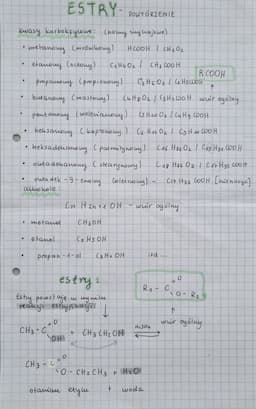 ESTRY - POWTÓRZENIE
kwasy karboksylowe: (nazwy zwyczajowe)
• metanowy (mrówkowy) HCOOH / CH₂O₂
• etanowy (octowy) C₂H₄O₂ / CH₃COOH
RCOOH
• propanowy (propionowy) C₃H₆O₂ / C₂H₅COOH
• butanowy (masłowy) C₄H₈O₂ / C₃H₇COOH wzór ogólny
• pentanowy (walerianowy) C₅H₁₀O₂ / C₄H₉COOH
• heksanowy (kapronowy) C₆H₁₂O₂ / C₅H₁₁COOH
• heksadekanowy (palmitynowy) C₁₆H₃₂O₂ / C₁₅H₃₁COOH
• oktadekanowy (stearynowy) C₁₈H₃₆O₂ / C₁₇H₃₅COOH
• oktadek-9-enowy (oleinowy) - C₁₇H₃₃COOH
alkohole:
CnH2n+1OH - wzór ogólny
• metanol CH₃OH
• etanol C₂H₅OH
• propan-1-ol C₃H₇OH itd...
estry:
Estry powstają w wyniku
reakcji estryfikacji
R₁ - C
O
O - R₂
wzór ogólny
CH₃ - C
O
OH
+ CH₃CH₂OH
H₂SO₄
CH₃ - C
O
O - CH₂CH₃ + H₂O
etanian etylu + woda